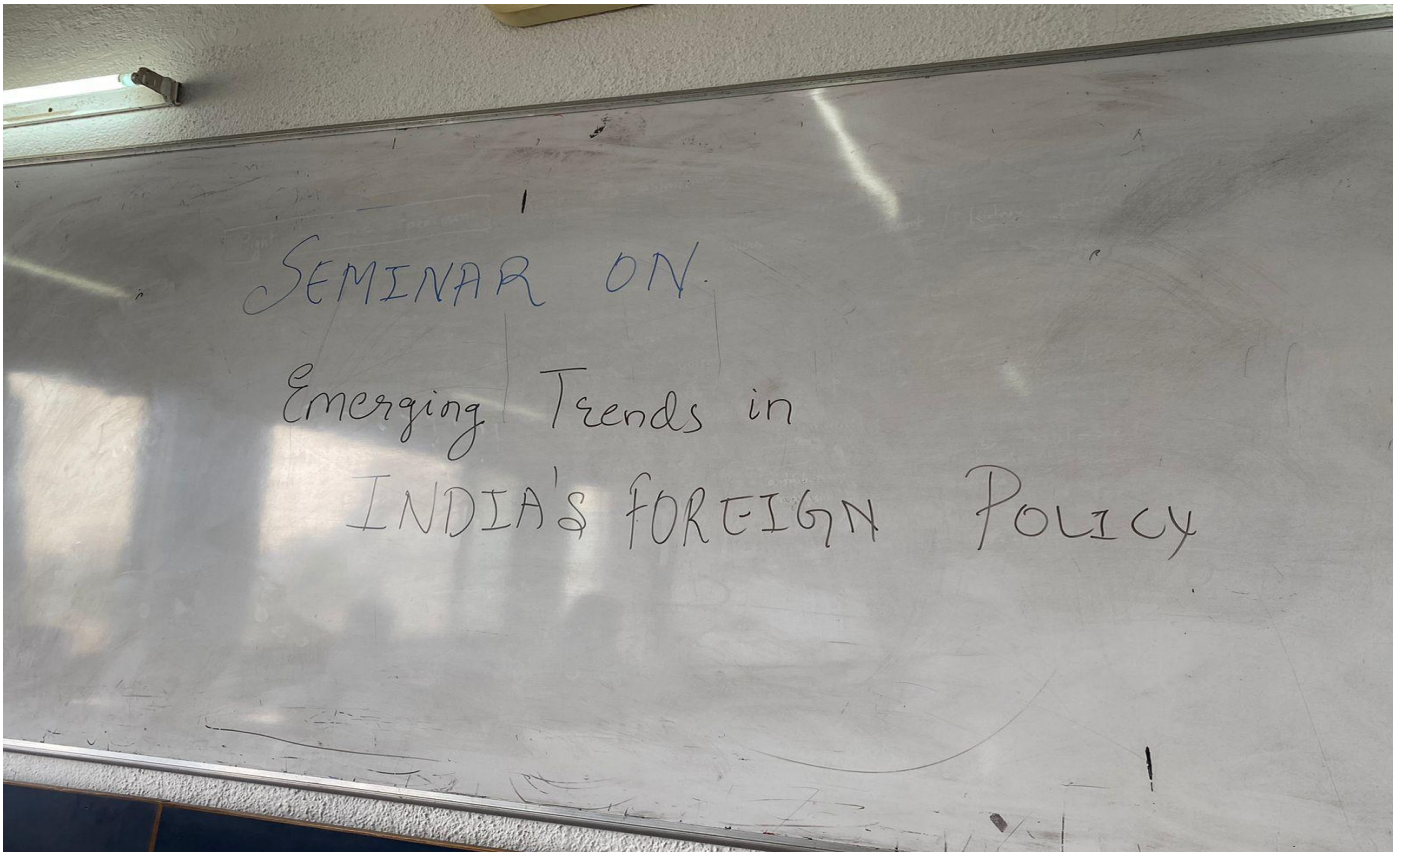 SEMINAR ON.
Emerging Trends in
INDIA'S FOREIGN POLICY